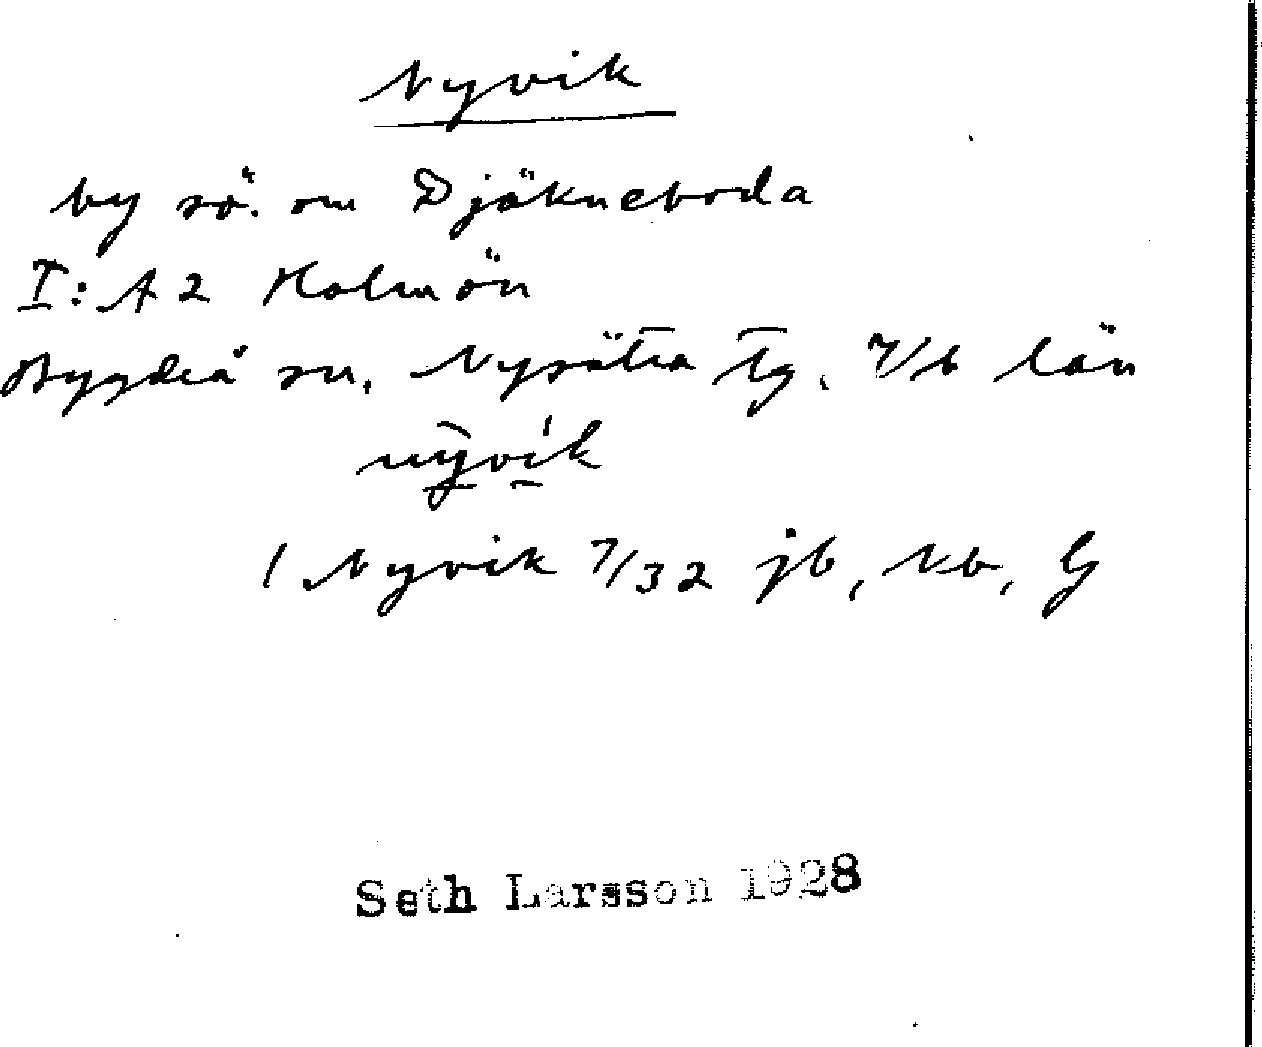 Nyvik
by sö. om Djäkneboda
I: A 2 Holmön
Bygdeå sn, Nysätra tg, V/b län
nyvik
1 Nyvik 7/32 jb, kb, G
Seth Larsson 1928